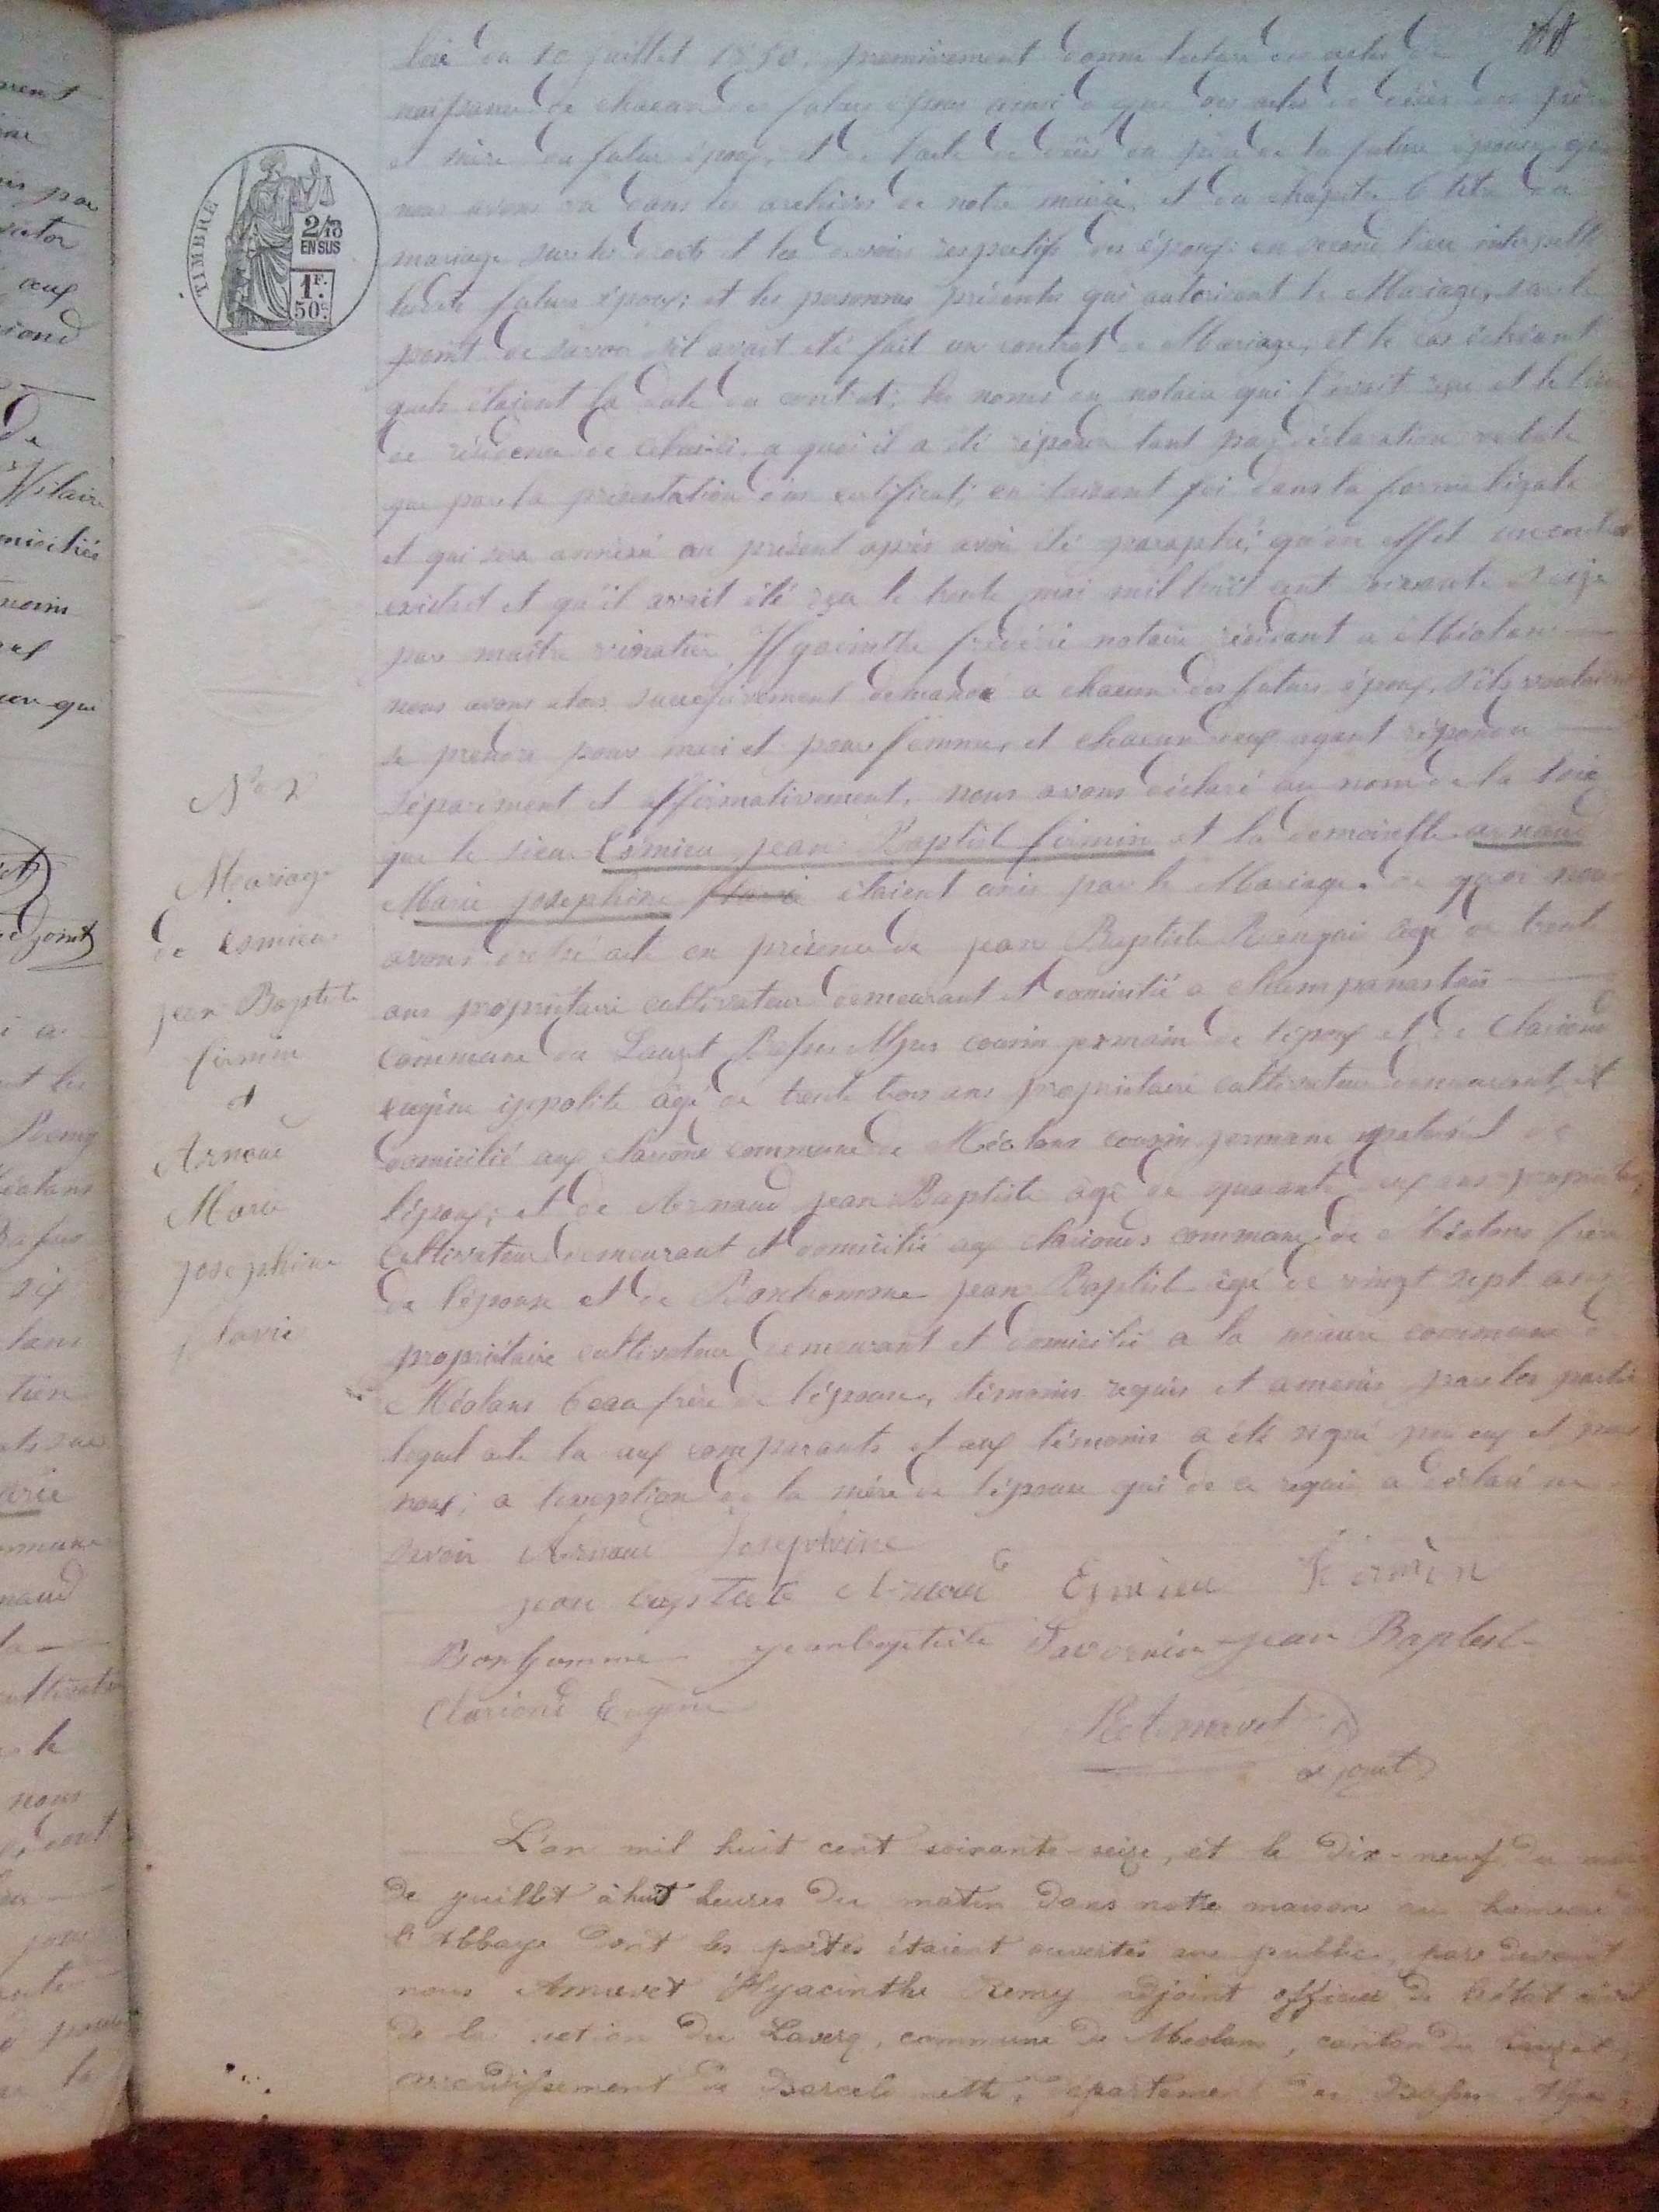 loi du 10 juillet 1850. premièrement donné lecture des actes de
naissance de chacun des futurs époux ainsi que des actes de décès des père
et mère du futur époux, et de l'acte de décès du père de la future épouse que
nous avons vu dans les archives de notre mairie, et du chapitre 6 titre du
mariage sur les droits et les devoirs respectifs des époux: en second lieu interpellé
lesdits futurs époux; et les personnes présentes qui autorisent le Mariage, sur le
point de savoir s'il avait été fait un contrat de Mariage, et le cas échéant
quels étaient la date du contrat; les noms du notaire qui l'avait reçu et le lieu
de résidence de celui-ci. a quoi il a été répondu tant par déclaration verbale
que par la présentation d'un certificat; en faisant foi dans la forme légale
et qui sera annexé au présent après avoir été paraphé, qu'en effet un contrat
existait et qu'il avait été reçu le trente mai mil huit cent soixante seize
par maitre vinatier Hyacinthe fréderic notaire résidant a Méolans
nous avons alors successivement demandé a chacun des futurs époux, s'ils voulaient
se prendre pour mari et pour femme, et chacun d'eux ayant répondu
séparément et affirmativement, nous avons déclaré au nom de la loix
que le sieur Esmieu jean Baptist firmin et la demoiselle arnaud
Marie josephine flavie étaient unis par le Mariage. de quoi nous
avons dressé acte en présence de jean Baptiste âgé de trent
ans propriétaire cultivateur demeurant et domicilié a
commune du Lauzet Basses Alpes cousin germain de l'époux et de Clariond
eugène ippolite âgé de trente trois ans propriétaire cultivateur demeurant et
domicilié aux clarionds commune de Méolans cousin germain de
l'époux; et de Arnaud jean Baptiste âgé de quarante deux ans propriétaire
cultivateur demeurant et domicilié aux clarionds commune de Méolans frère
de l'épouse et de Bonhomme jean Baptist âgé de vingt sept ans
propriétaire cultivateur demeurant et domicilié a la commune de
Méolans beau frère de l'épouse, témoins requis et amenés par les parties
lequel acte lu aux comparants et aux témoins a été signé par eux et par
nous; a l'exception de la mère de l'épouse qui de ce requis a déclaré ne
savoir Arnaud Josephine
jean baptiste Arnaud Esmieu Firmin
Bonhomme jeanbaptiste jean Baptist
Clariond Eugène
adjoint
TIMBRE
2/10
EN SUS
1F.
50c.
No 2
Mariage
de Esmieu
jean Baptiste
firmin
et
Arnaud
Marie
josephine
flavie
L'an mil huit cent soixante-seize, et le dix-neuf du mois
de juillet à huit heures du matin dans notre maison au hameau de
l'Abbaye dont les portes étaient ouvertes au public, par devant
nous Hyacinthe Remy adjoint officier de l'état civil
de la section du Laverq, commune de Méolans, canton du Lauzet,
arrondissement de Barcelonnette, département des Basses Alpes,